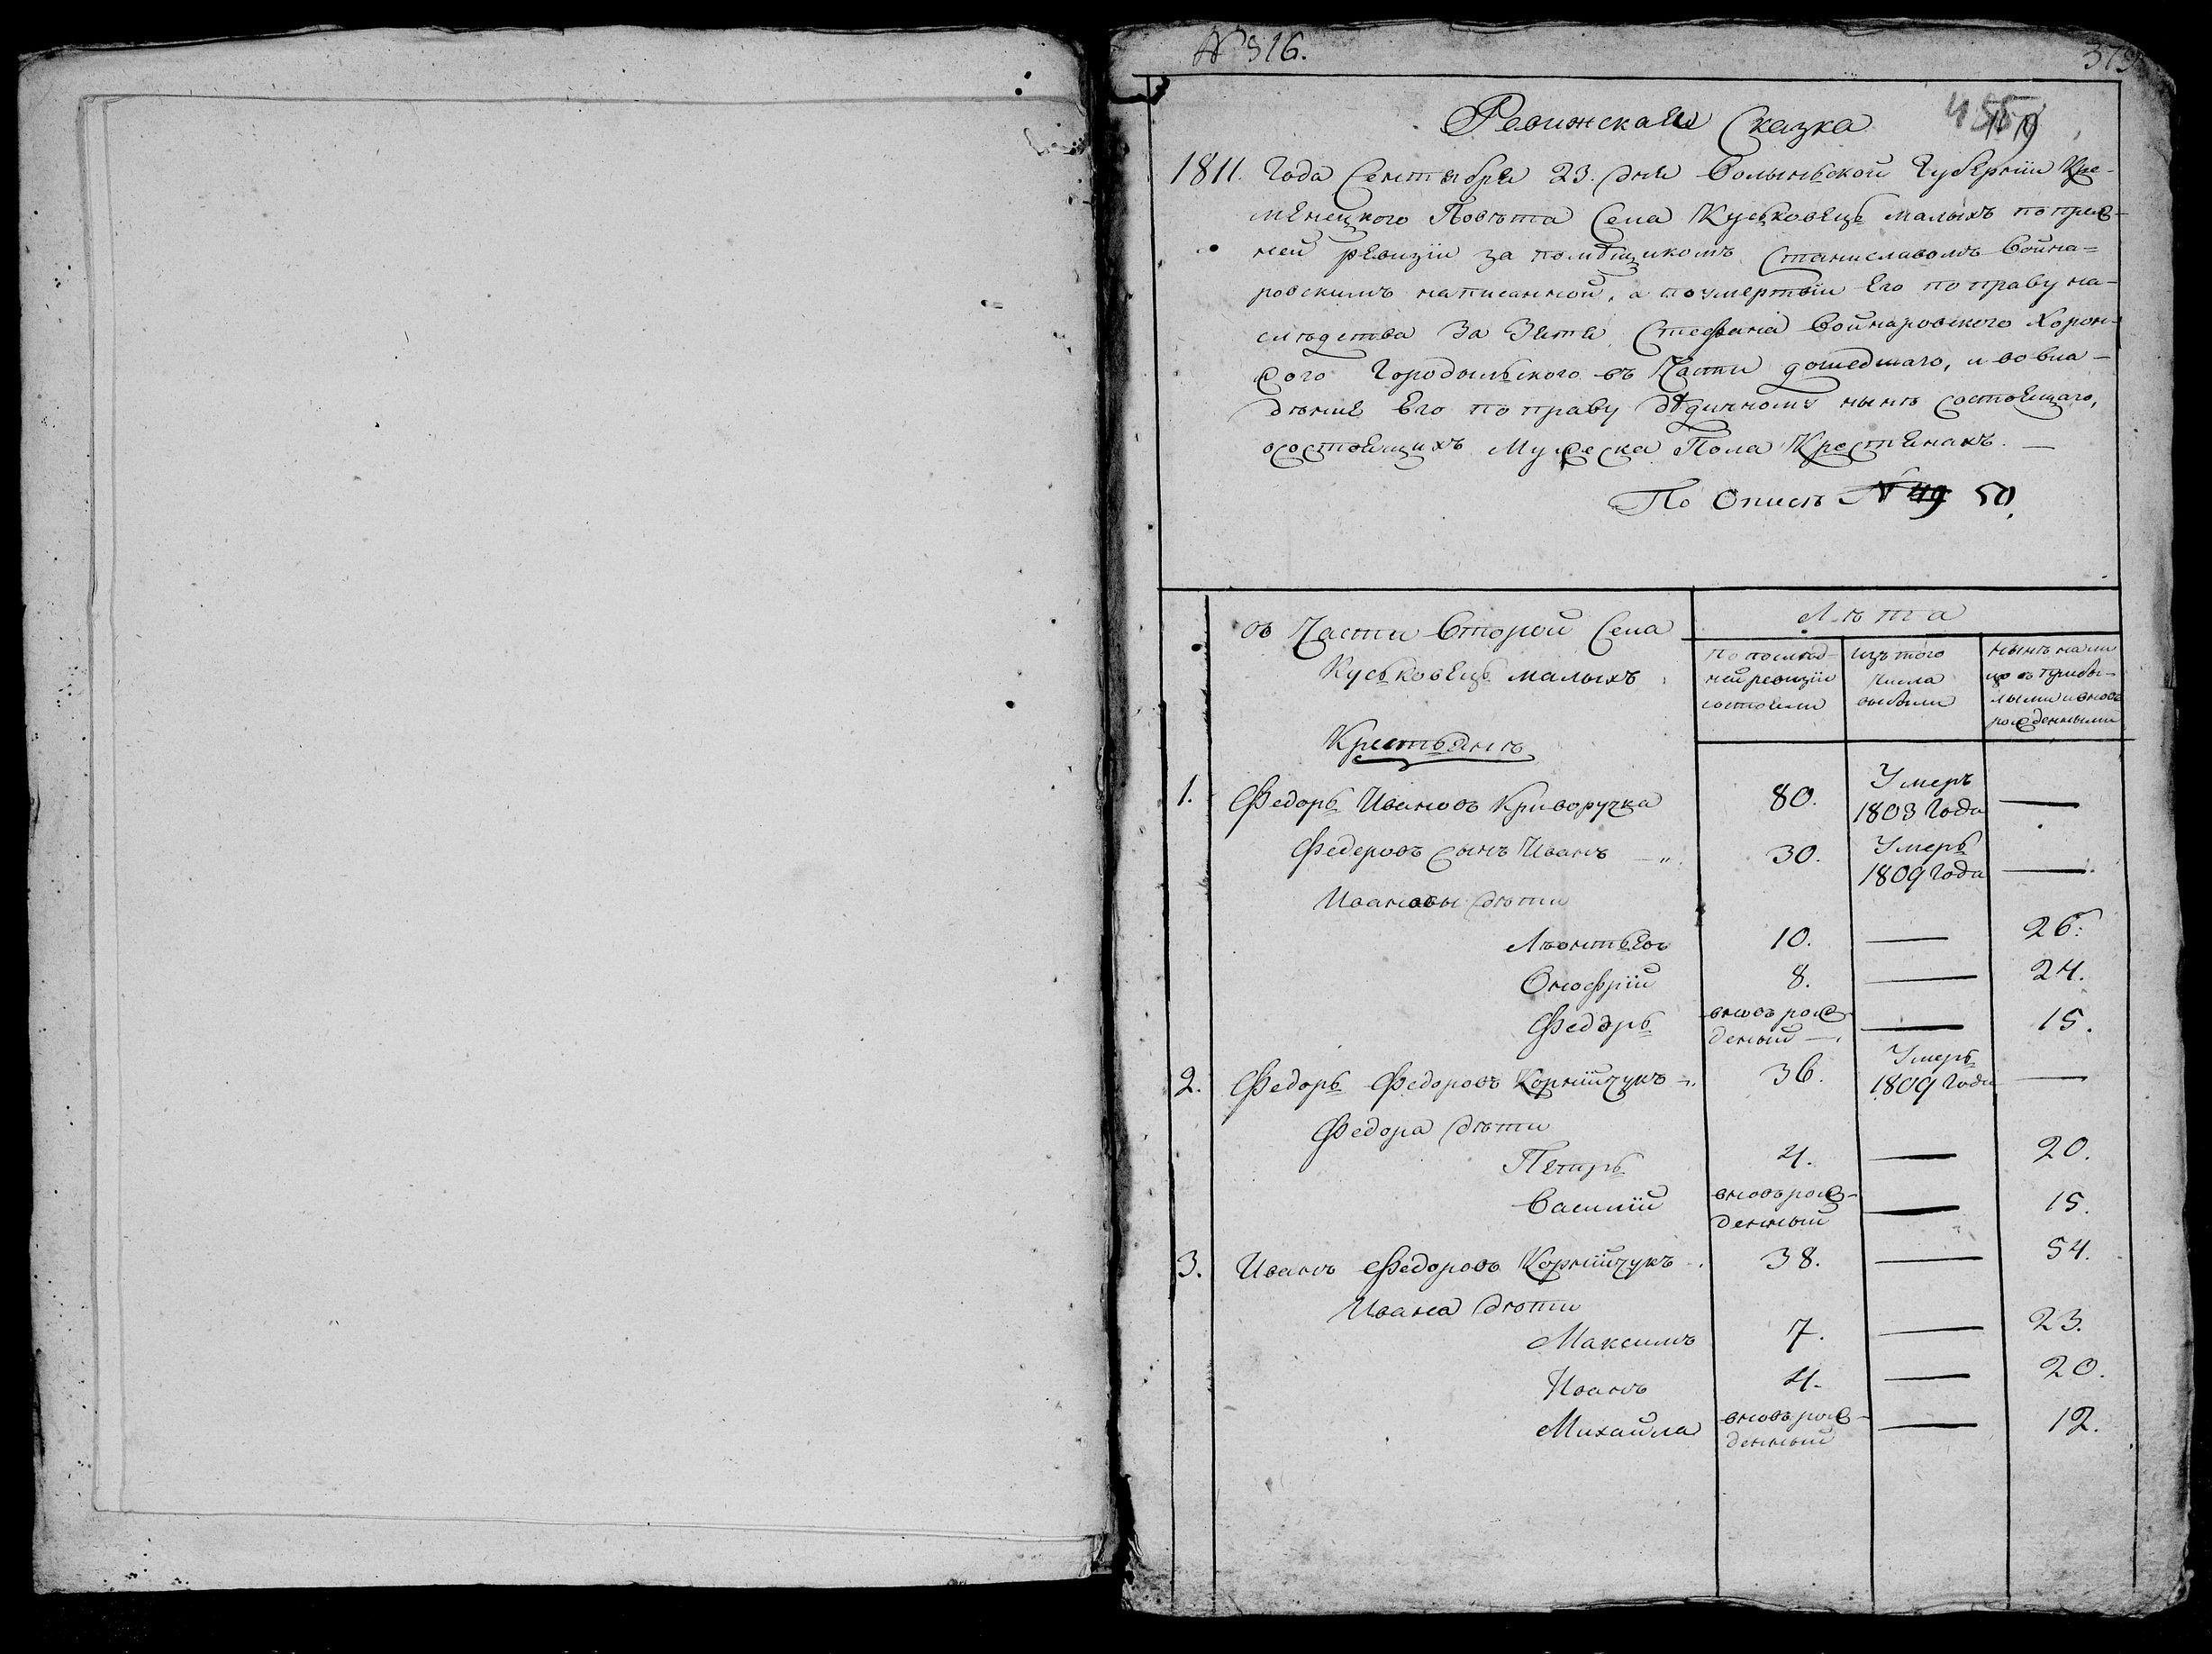 № 516.
379
Ревижская Сказка
1811. Года Сентября 23. дня Волыньской Губерніи Кре-
мѣнецкого Повѣта Села Куськовець малыхъ по преж-
ней ревизіи за помѣщикомъ Станиславомъ Война-
ровскимъ написанной, а по умертвіи Его по праву на-
слѣдства За Зятя Стефана Войнаровского Хорон-
жого Городельского въ Части дошедшаго, и во вла-
дѣние Его по праву дѣдичному нынѣ состоящаго,
о состоящихъ Мужеска Пола Крестянахъ. —
По Описѣ № 49 50.
въ Части Второй Села
Куськовець малыхъ
Лѣта
По послѣд-
ней ревизіи
состояли
Изъ того
числа
выбыли
Нынѣ нали
цо съ прибы-
лыми и вновь
рожденными
Крестьянѣ
1. Федоръ Ивановъ Криворучка 80. Умеръ 1803 Года —
Федеровъ сынъ Иванъ — „ 30. Умеръ 1809 Года —
Ивановы дѣти
Лѣонтьевъ 10. — 26.
Онофрій 8. — 24.
Федоръ вновь рож-
деный — 15.
2. Федоръ Федоровъ Корнійчукъ 36. Умеръ 1809 Года —
Федора дѣти
Петръ 4. — 20.
Василій вновь рож-
денный — 15.
3. Иванъ Федоровъ Корнійчукъ 38. — 54.
Ивана дѣти
Максимъ 7. — 23.
Иванъ 4. — 20.
Михайла вновь рож-
денный — 12.